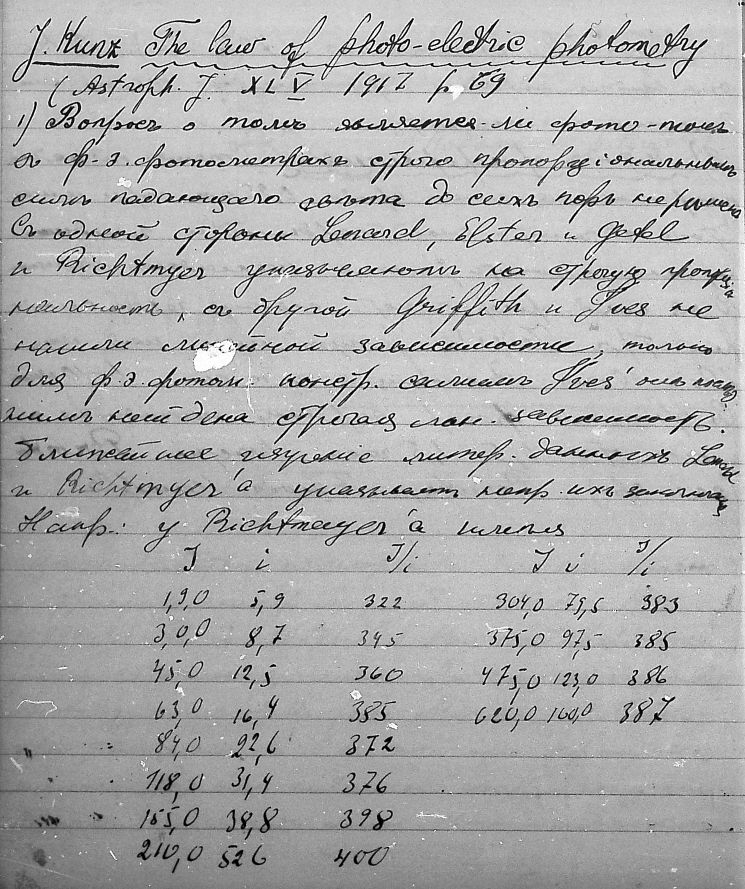 J. Kunz The law of photo-electric photometry
(Astroph. J. XLV 1917 p. 69
1) Вопросъ о томъ является-ли фото-токъ
въ ф-э. фотометрахъ строго пропорціональнымъ
силѣ падающаго свѣта до сихъ поръ не рѣшенъ
Съ одной стороны Lenard, Elster и Geitel
и Richtmyer указываютъ на строгую
нальность, съ другой Griffith и Ives не
нашли линейной зависимости, только
для ф.э. фотом. констр. самимъ Ives'омъ
найдена строгая лин. зависимость.
Ближайшее изученіе литер. данныхъ Lenard
и Richtmyer'а указываетъ напр. ихъ
Напр.: у Richtmeyer'а имѣемъ
J i J/i J i J/i
19,0 5,9 322 304,0 79,5 383
30,0 8,7 345 375,0 97,5 385
45,0 12,5 360 475,0 123,0 386
63,0 16,4 385 620,0 160,0 387
84,0 22,6 372
118,0 31,4 376
155,0 38,8 398
210,0 52 6 400